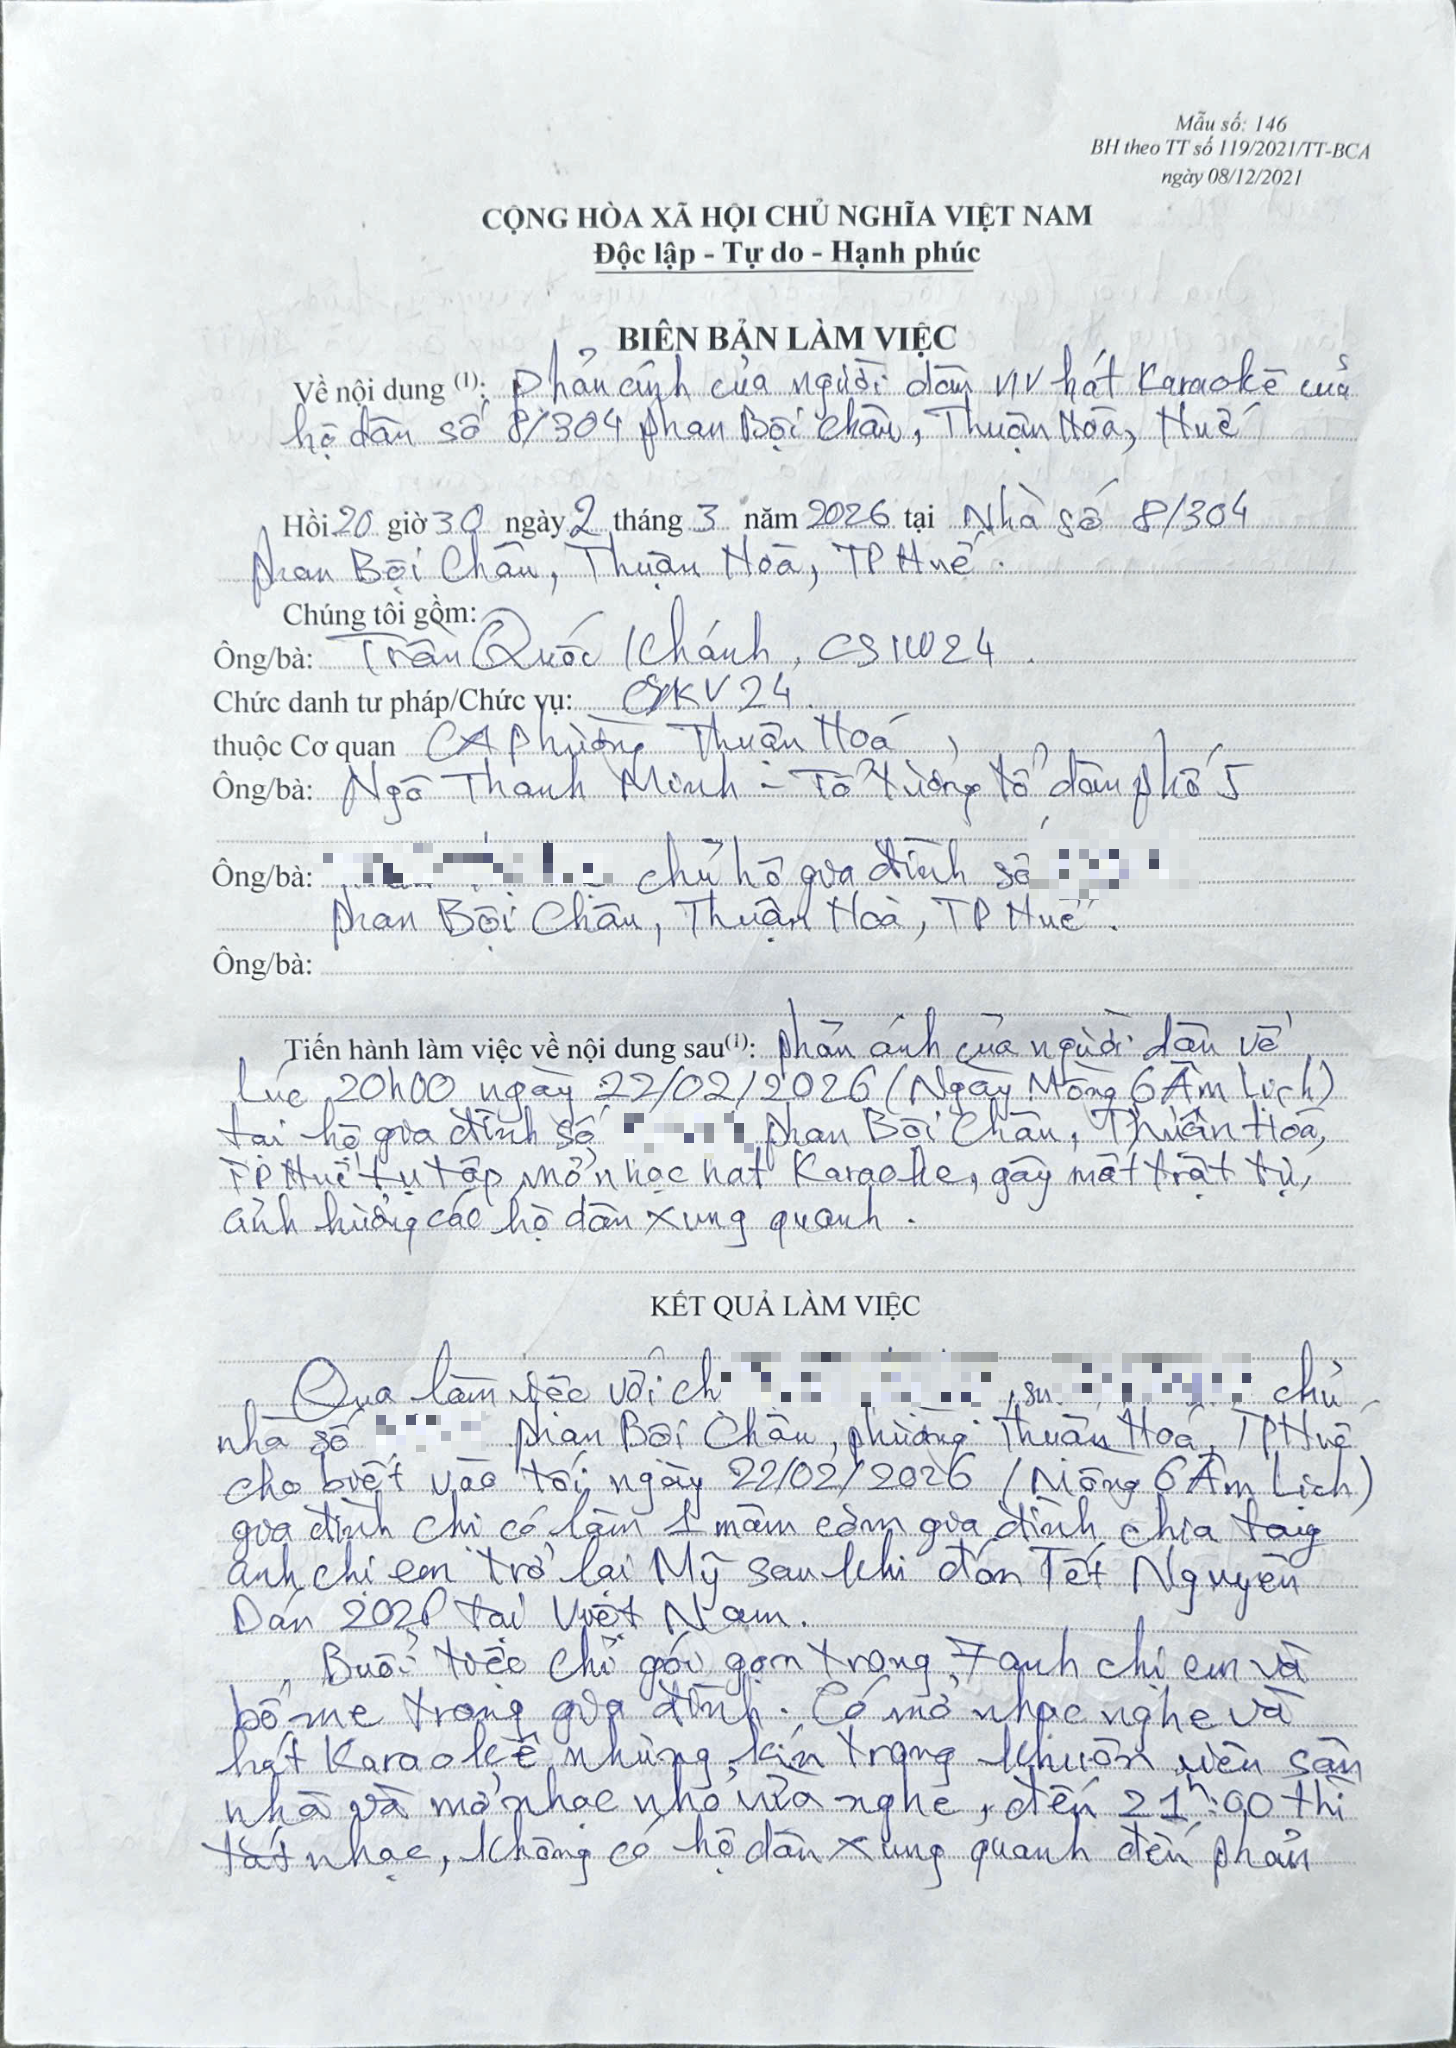 Mẫu số: 146
BH theo TT số 119/2021/TT-BCA
ngày 08/12/2021
CỘNG HÒA XÃ HỘI CHỦ NGHĨA VIỆT NAM
Độc lập - Tự do - Hạnh phúc
BIÊN BẢN LÀM VIỆC
Về nội dung (1): Phản ánh của người dân v/v hát Karaokê của
hộ dân số 8/304 Phan Bội Châu, Thuận Hoà, Huế
Hồi 20 giờ 30 ngày 2 tháng 3 năm 2026 tại Nhà số 8/304
Phan Bội Châu, Thuận Hoà, TP Huế.
Chúng tôi gồm:
Ông/bà: Trần Quốc Khánh, 24.
Chức danh tư pháp/Chức vụ: CSKV 24.
thuộc Cơ quan CA Phường Thuận Hoá
Ông/bà: Ngô Thanh Minh - Tổ trưởng tổ dân phố 5
Ông/bà: chủ hộ gia đình số
Phan Bội Châu, Thuận Hoà, TP Huế.
Ông/bà:
Tiến hành làm việc về nội dung sau(1): Phản ánh của người dân về
lúc 20h00 ngày 22/02/2026 (Ngày Mồng 6 Âm Lịch)
tại hộ gia đình số Phan Bội Châu, Thuận Hoá,
TP Huế tụ tập mở nhạc hát Karaoke, gây mất trật tự,
ảnh hưởng các hộ dân xung quanh.
KẾT QUẢ LÀM VIỆC
Qua làm việc với ch , chủ
nhà số Phan Bội Châu, phường Thuận Hoá, TP Huế
cho biết vào tối ngày 22/02/2026 (Mồng 6 Âm Lịch)
gia đình chị có làm 1 mâm cơm gia đình chia tay
anh chị em trở lại Mỹ sau khi đón Tết Nguyên
Dán tại Việt Nam.
Buổi tiệc chỉ gói gọn trong 7 anh chị em và
bố mẹ trong gia đình. Có mở nhạc nghe và
hát Karaokê nhưng kín trong khuôn viên sân
nhà và mở nhạc nhỏ vừa nghe, đến 21h:00 thì
tắt nhạc, không có hộ dân xung quanh đến phản